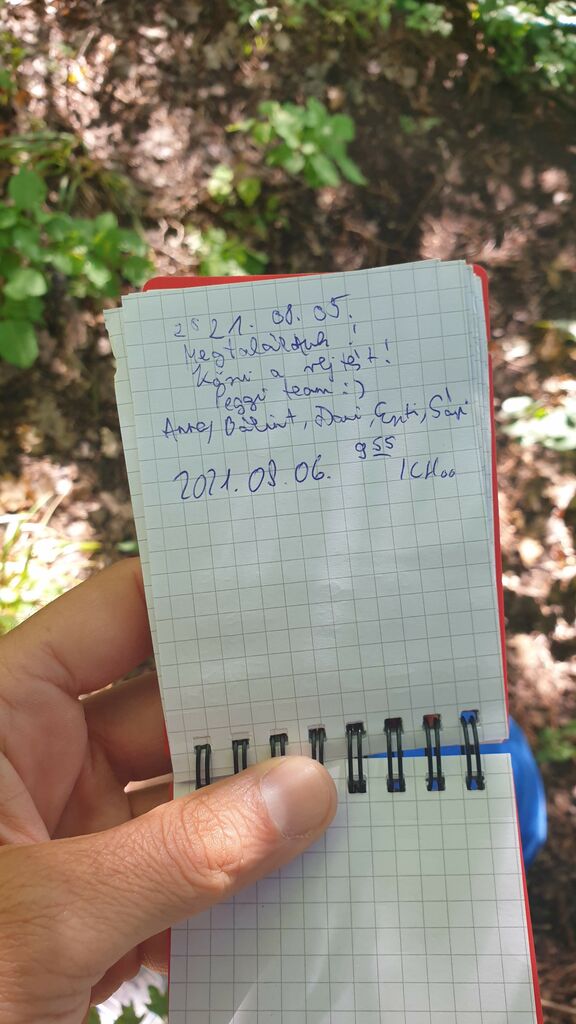 2021.08.05.
Megtaláltuk!
Köszi a rejtést!
team :)
Anna, Bálint, Dani, Eszti, Sári
2021.08.06. 9 55